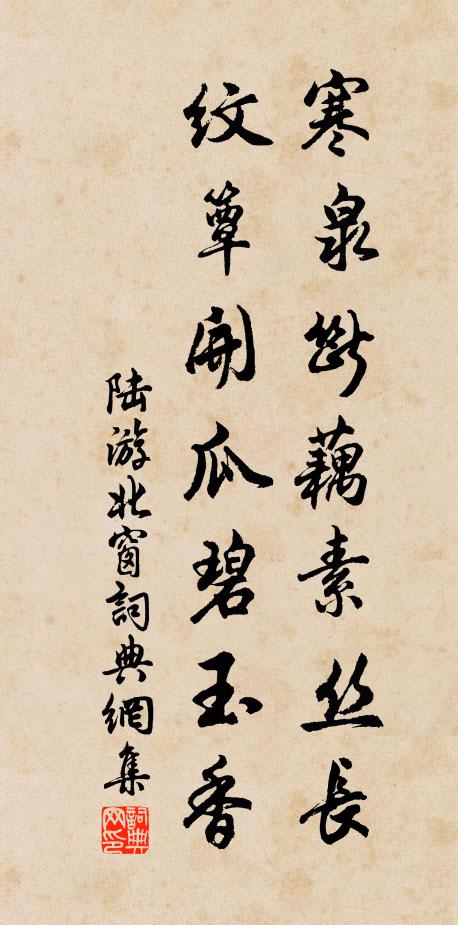 寒泉斷藕素丝長
紋簟開瓜碧玉香
陆游北窗詞典網集
詞典网印